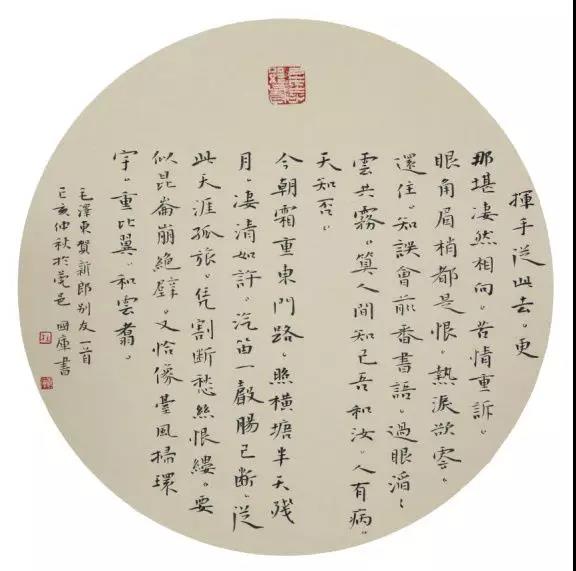 揮手從此去。更
那堪凄然相向。苦情重訴。
眼角眉梢都是恨。熱淚欲零。
還住。知誤會前番書語。過眼滔〻
雲共霧。算人間知己吾和汝。人有病。
天知否。
今朝霜重東門路。照橫塘半天殘
月。凄清如許。汽笛一聲腸已斷。從
此天涯孤旅。凭割斷愁絲恨縷。要
似昆崙崩絕壁。又恰像臺風掃環
宇。重比翼。和雲翥。
毛澤東賀新郎別友一首
己亥仲秋於莞邑 國庫書